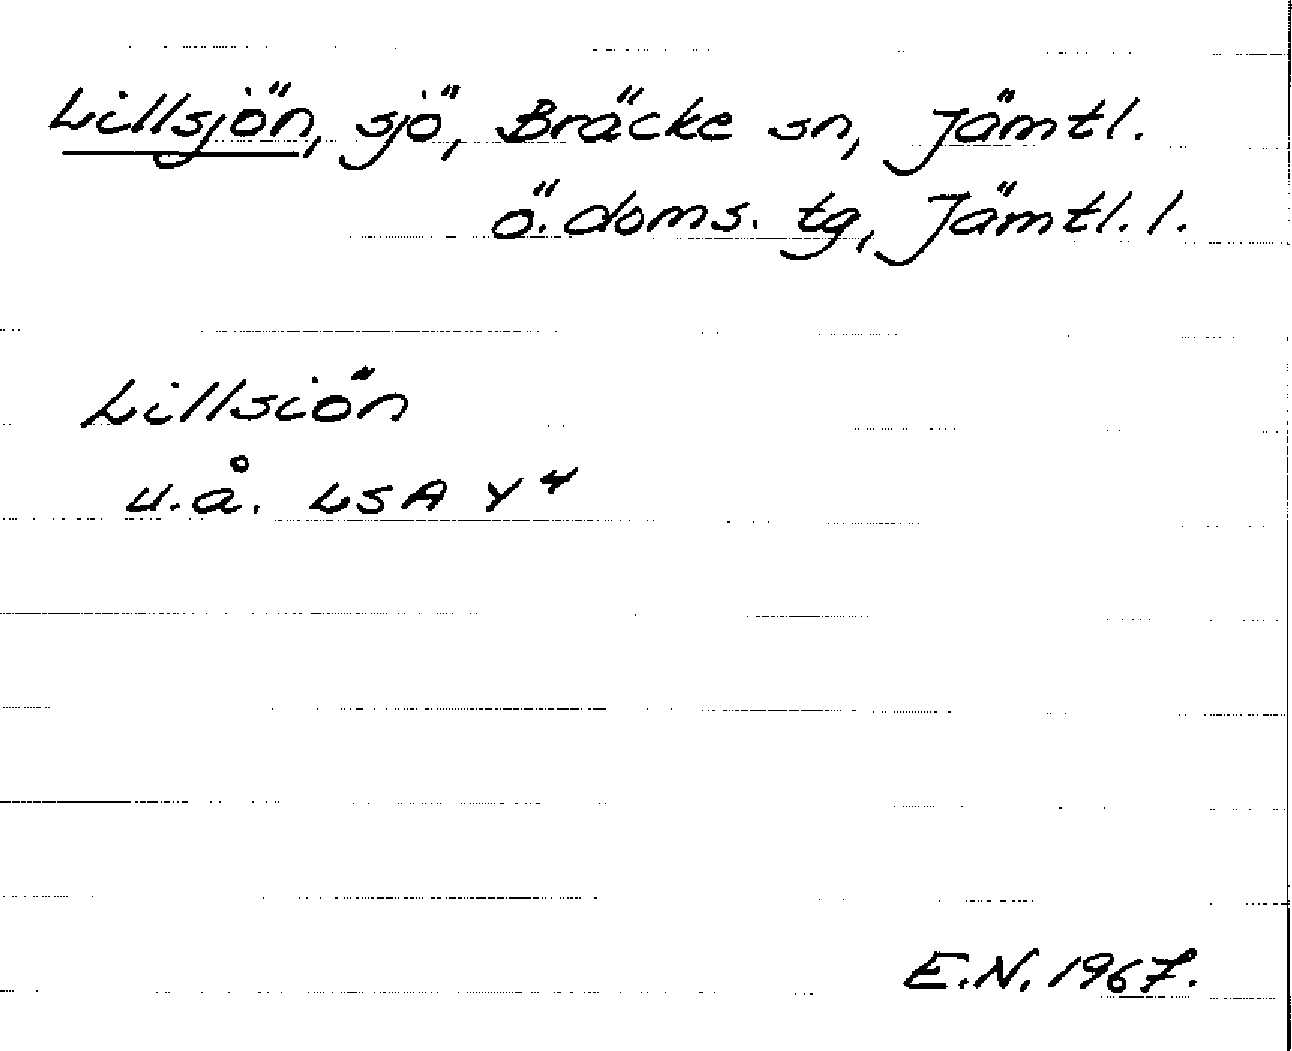 Lillsjön, sjö, Bräcke sn, Jämtl.
Ö. doms. tg, Jämtl. l.
Lillsiön
u.å. LSA Y4
E.N. 1967.